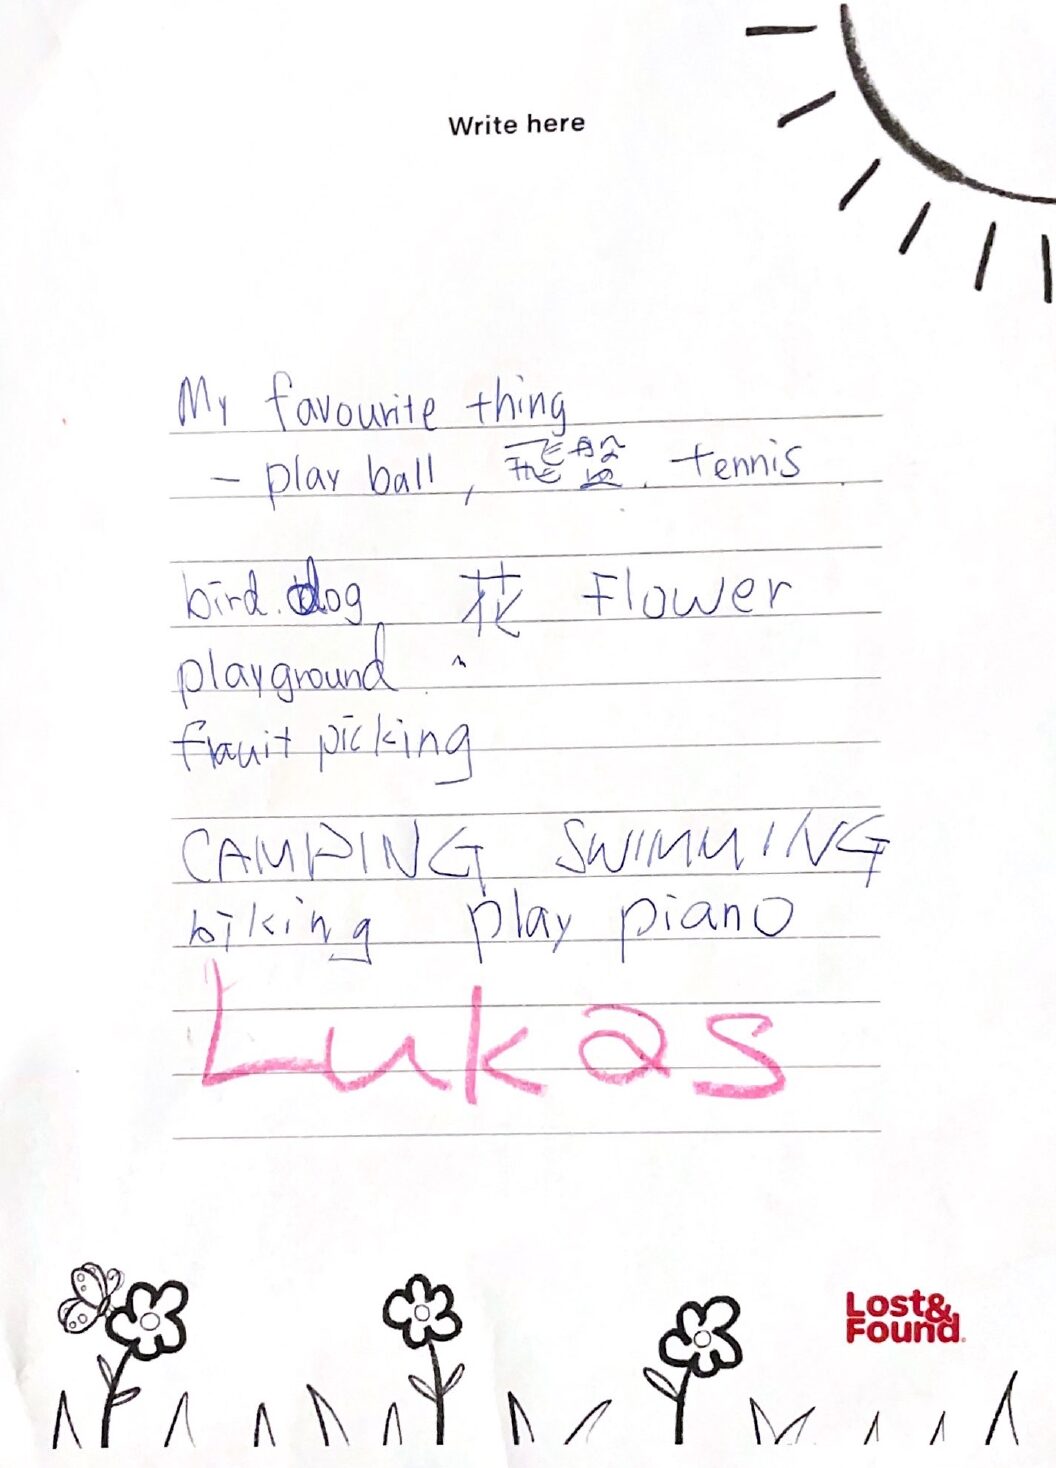 Write here
My favourite thing
- play ball, 飛盤. tennis
bird. dog 花 Flower
playground
fruit picking
CAMPING SWIMMING
biking play piano
Lukas
Lost&
Found